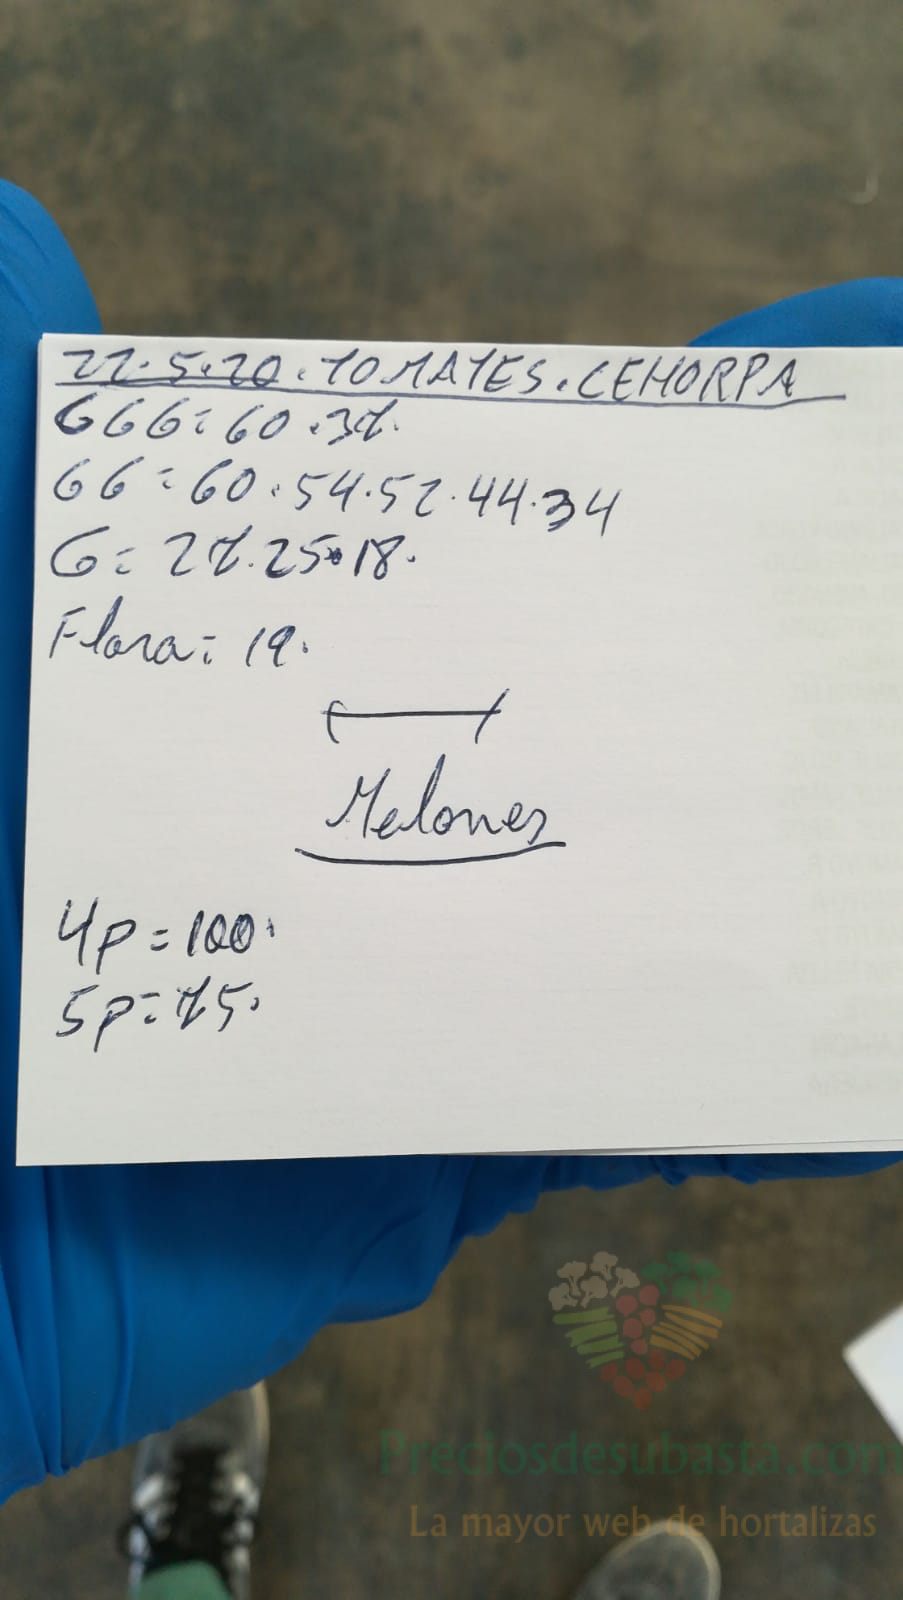 22.5.20.TOMATES.CEHORPA
GGG=60.37.
GG=60.54.52.44.34
G=27.25.18.
Flora=19.
Melones
4p=100.
5p=75.
Preciosdesubasta.com
La mayor web de hortalizas